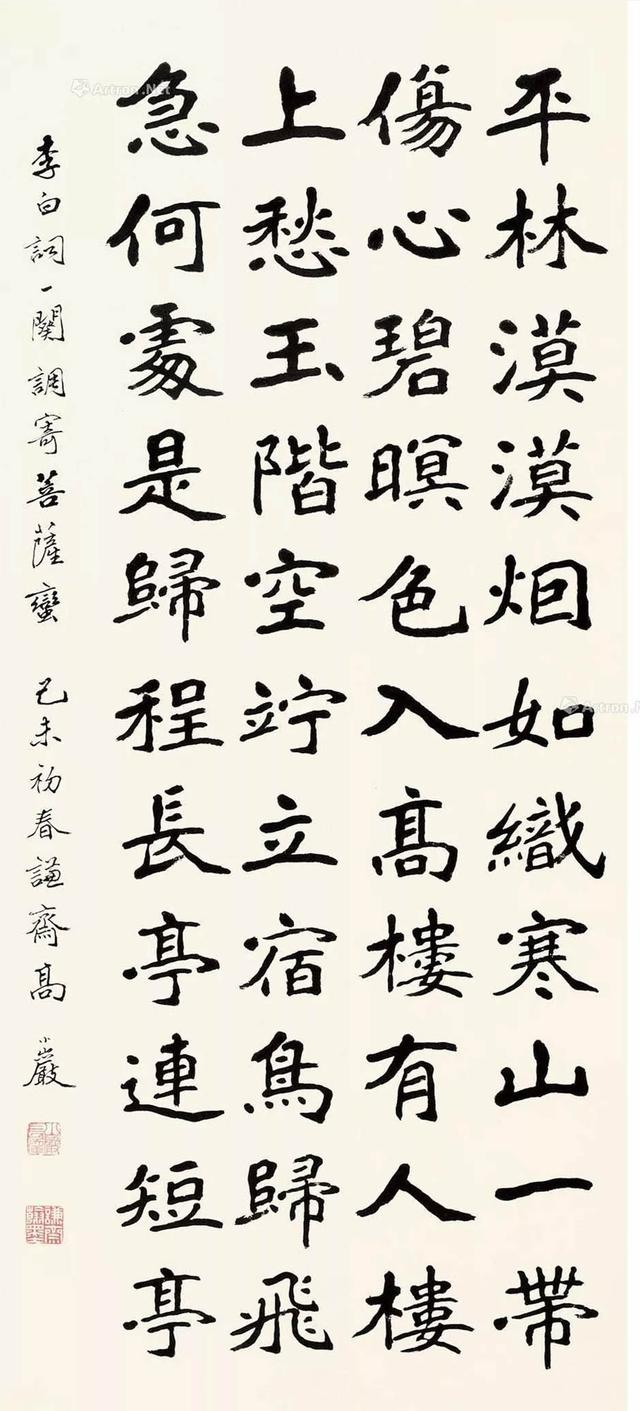 平林漠漠烟如織寒山一帶
傷心碧暝色入高樓有人樓
上愁玉階空竚立宿鳥歸飛
急何處是歸程長亭連短亭
李白詞一闋調寄菩薩蠻 己未初春謙齋高小巖
Artron.Net